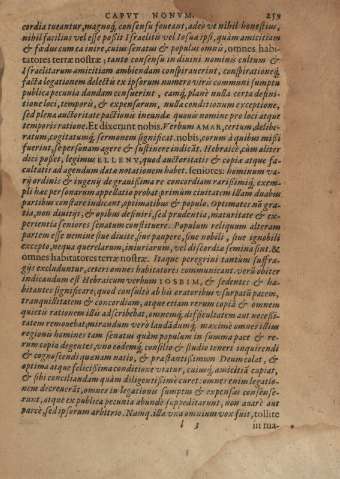 CAPVT NONVM. 259
cordia tueantur, magnoq́; consensu foueant, adeò vt nihil honestius,
nihil facilius vel esse possit Israëlitis vel Iosuæ ipsi, quàm amicitiam
& fœdus cum ea inire, cuius senatus & populus omnis, omnes habi-
tatores terræ nostræ, tanto consensu in diuini nominis cultum &
Israëlitarum amicitiam ambiendam conspirauerint, conspirationeq́;
facta legationem delectã ex ipsorum numero viris communi sumptu
publica pecunia dandam censuerint, eamq́; planè nulla certa defini-
tione loci, temporis, & expensarum, nulla conditionum exceptione,
sed plena auctoritate pactionis ineundæ quouis nomine pro loci atque
temporis ratione. Et dixerunt nobis. Verbum AMAR, certum, delibe-
ratum, cogitatumq́; sermonem significat. nobis, eorum à quibus missi
fuerint, se personam agere & sustinere indicãt. Hebraicè, cùm alter
dici posset, legimus ELLENV, quod auctoritatis & copiæ atque fa-
cultatis ad agendum datæ notationem habet. seniores: hominum va-
rij ordinis & ingenij de grauissima re concordiam rarissimã, exem-
pli hæc personarum appellatio probat. primùm ciuitatem illam duabus
partibus constare indicant, optimatibus & populo. Optimates nõ gra-
tia, non diuitijs, & opibus definiri, sed prudentia, maturitate & ex-
perientia seniores senatum constituere. Populum reliquum alteram
partem esse nemine siue diuite, siue paupere, siue nobili, siue ignobili
excepto, nequa querelarum, iniuriarum, vel discordiæ semina sint. &
omnes habitatores terræ nostræ. Itaque peregrini tantùm suffra-
gijs excluduntur, ceteri omnes habitatores communicant. verò obiter
indicandum est Hebraicum verbum IOSBIM, & sedentes & ha-
bitantes significare, quod consultò ab his oratoribus vsurpatũ pacem,
tranquillitatem & concordiam, atque etiam rerum copiã & omnem
quietis rationem illis adscribebat, omnemq́; difficultatem aut necessi-
tatem remouebat, mirandum verò laudandumq́; maximè omnes illius
regionis homines tam senatum quàm populum in summa pace & re-
rum copia degentes, vno eodemq́; consilio & studio teneri inquirendi
& cognoscendi quænam natio, & præstantissimum Deum colat, &
optima atque felicissima conditione vtatur, cuiusq́; amicitiã cupiat,
& sibi conciliandam quàm diligentissimè curet: omnes enim legatio-
nem decreuerãt, omnes in legationis sumptus & expensas consense-
runt, atque ex publica pecunia abundè suppeditarunt, non auarè aut
parcè, sed ipsorum arbitrio. Namq́; illa vna omnium vox fuit, tollite
in ma-